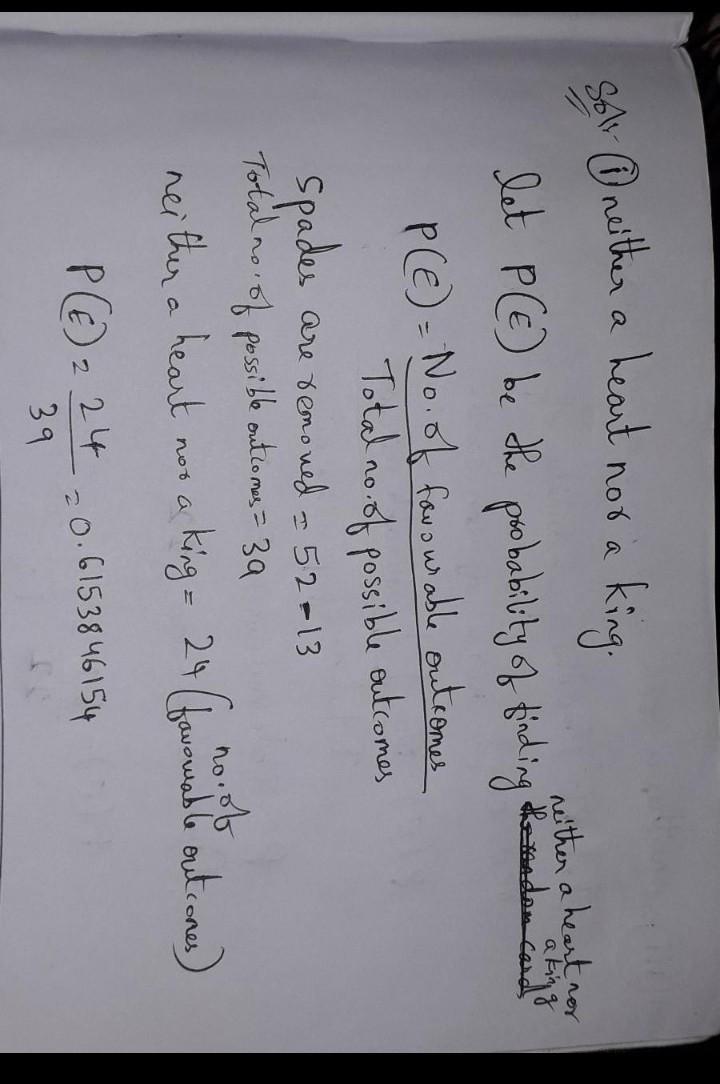 Soln- (i) neither a heart nor a king.
let P(E) be the probability of finding neither a heart nor a king
P(E) = No. of favourable outcomes
Total no. of possible outcomes
Spades are removed = 52 - 13
Total no. of possible outcomes = 39
neither a heart nor a king = 24 (no. of favourable outcomes)
P(E) = 24
39
= 0.6153846154